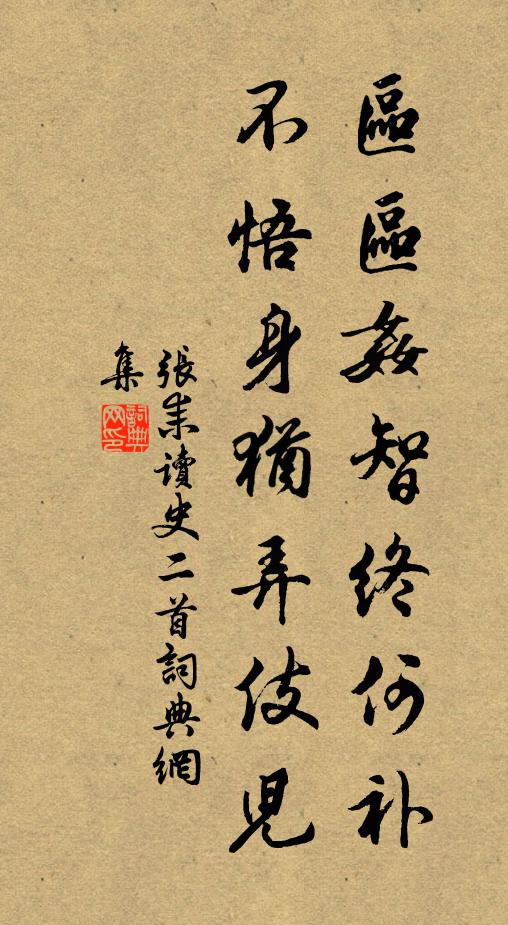 區區姦智終何补
不悟身猶弄伎児
張耒讀史二首詞典網
集
詞典
网印